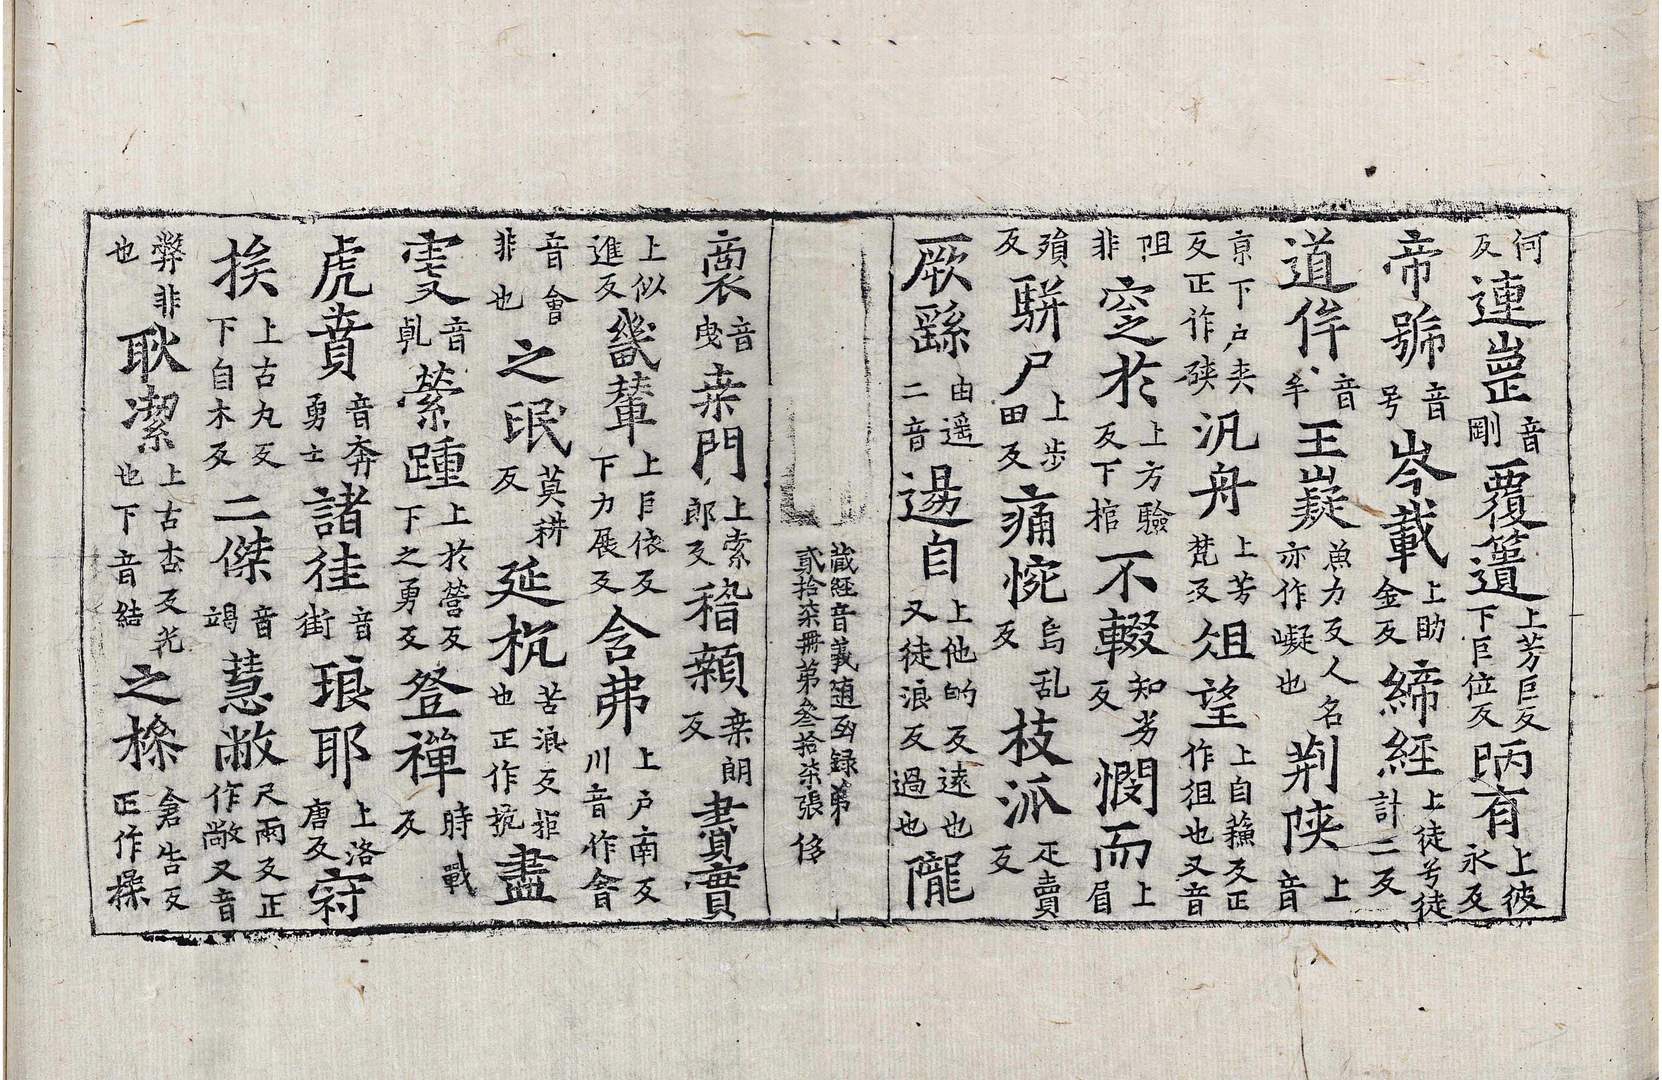 何反連崗音剛覆簉上芳巨反下巨位反昞有上彼永反
帝號音号岑載上助金反締經上徒兮徒計二反
道侔音牟王嶷魚力反人名亦作㠜也荆陕上音
京下户夹反正作硤汎舟上芳梵反俎望上自蘓反正作徂也又音
阻非窆於上方驗反下棺不輟知劣反憫而上眉
殞反駢尸上步田反痛惋烏乱反枝派疋賣反
厥繇由遥二音逿自上他的反遠也又徒浪反過也隴
藏經音義随函録第
貳拾柒冊第叄拾柒張 侈
裔音曳桒門上索郎反稽顙桒朗反賮賣
上似進反畿輦上巨依反下力展反含弗上户南反川音作含
音會非也之氓莫耕反延杭苦浪反拒也正作抗盡
虔音乹縈踵上於營反下之勇反登禪時戰反
虎賁音奔勇士諸徍音街瑯耶上洛唐反窃
挨上古丸反下自木反二傑音竭慧敞尺兩反正作敞又音
弊非也耿潔上古杏反光也下音結之㮮倉告反正作操